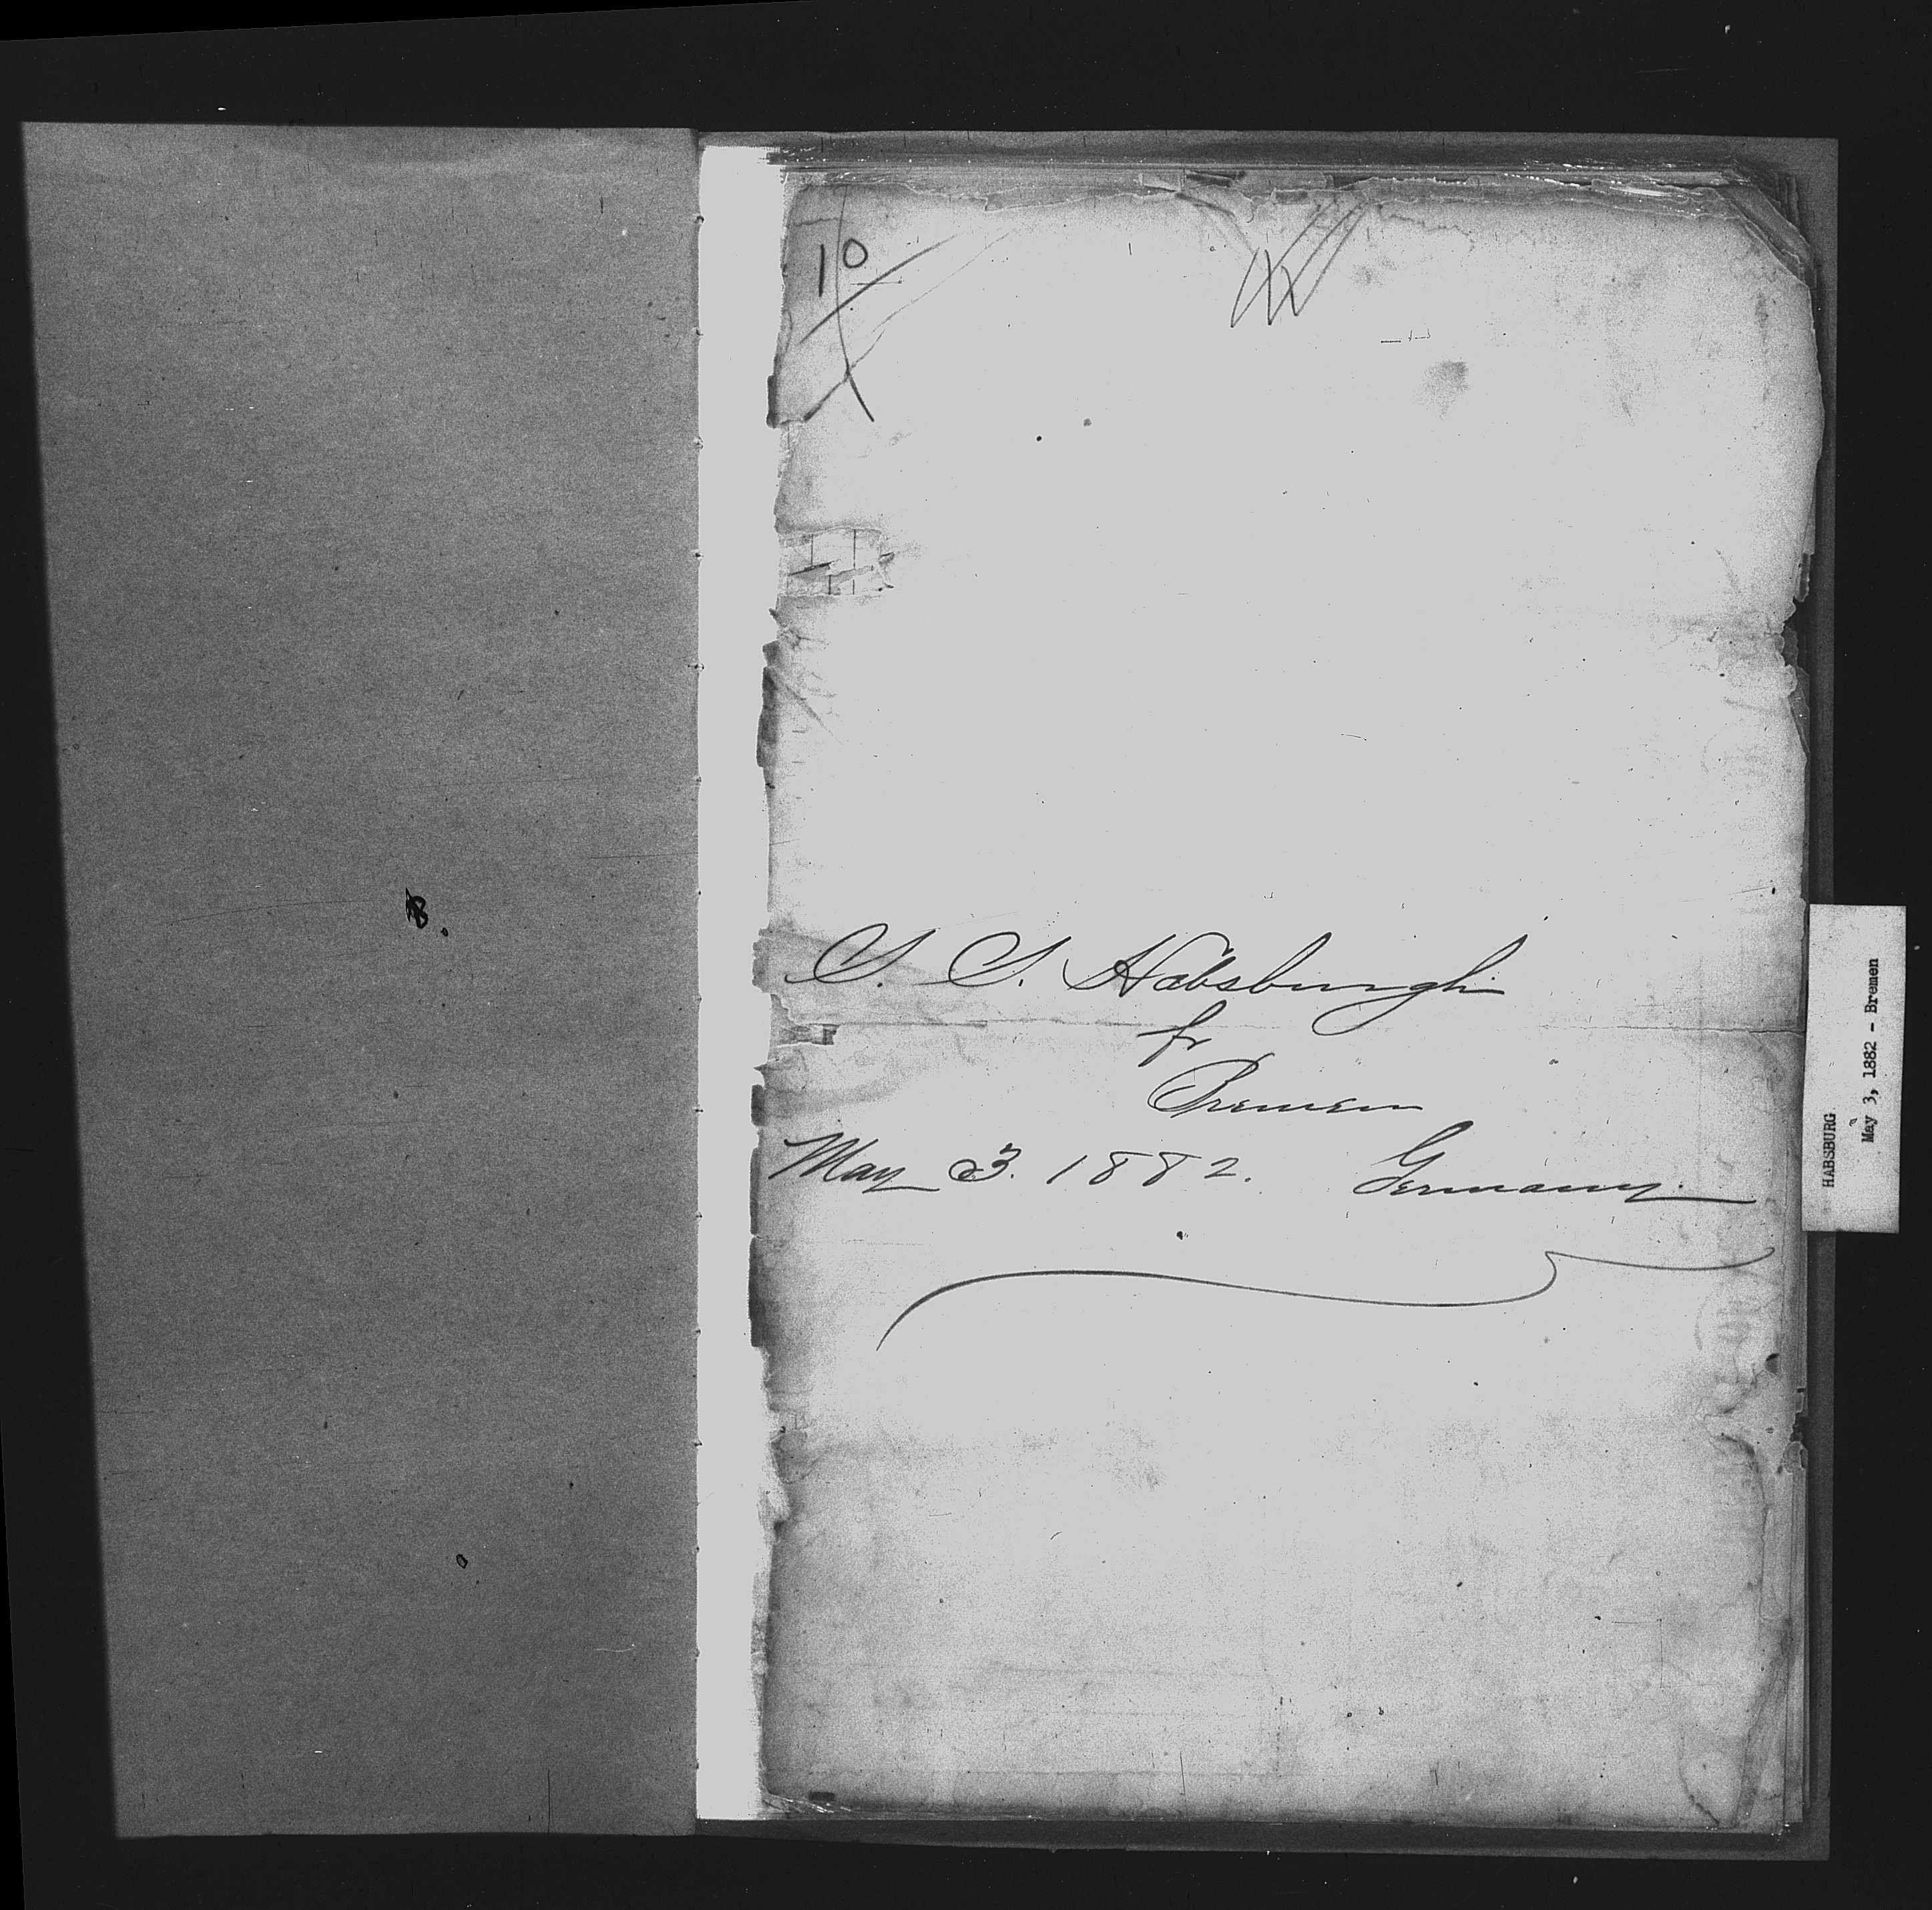 10
S. S. Habsburgh
fr
Bremen
May 3. 1882. Germany.
HABSBURG
May 3, 1882 - Bremen